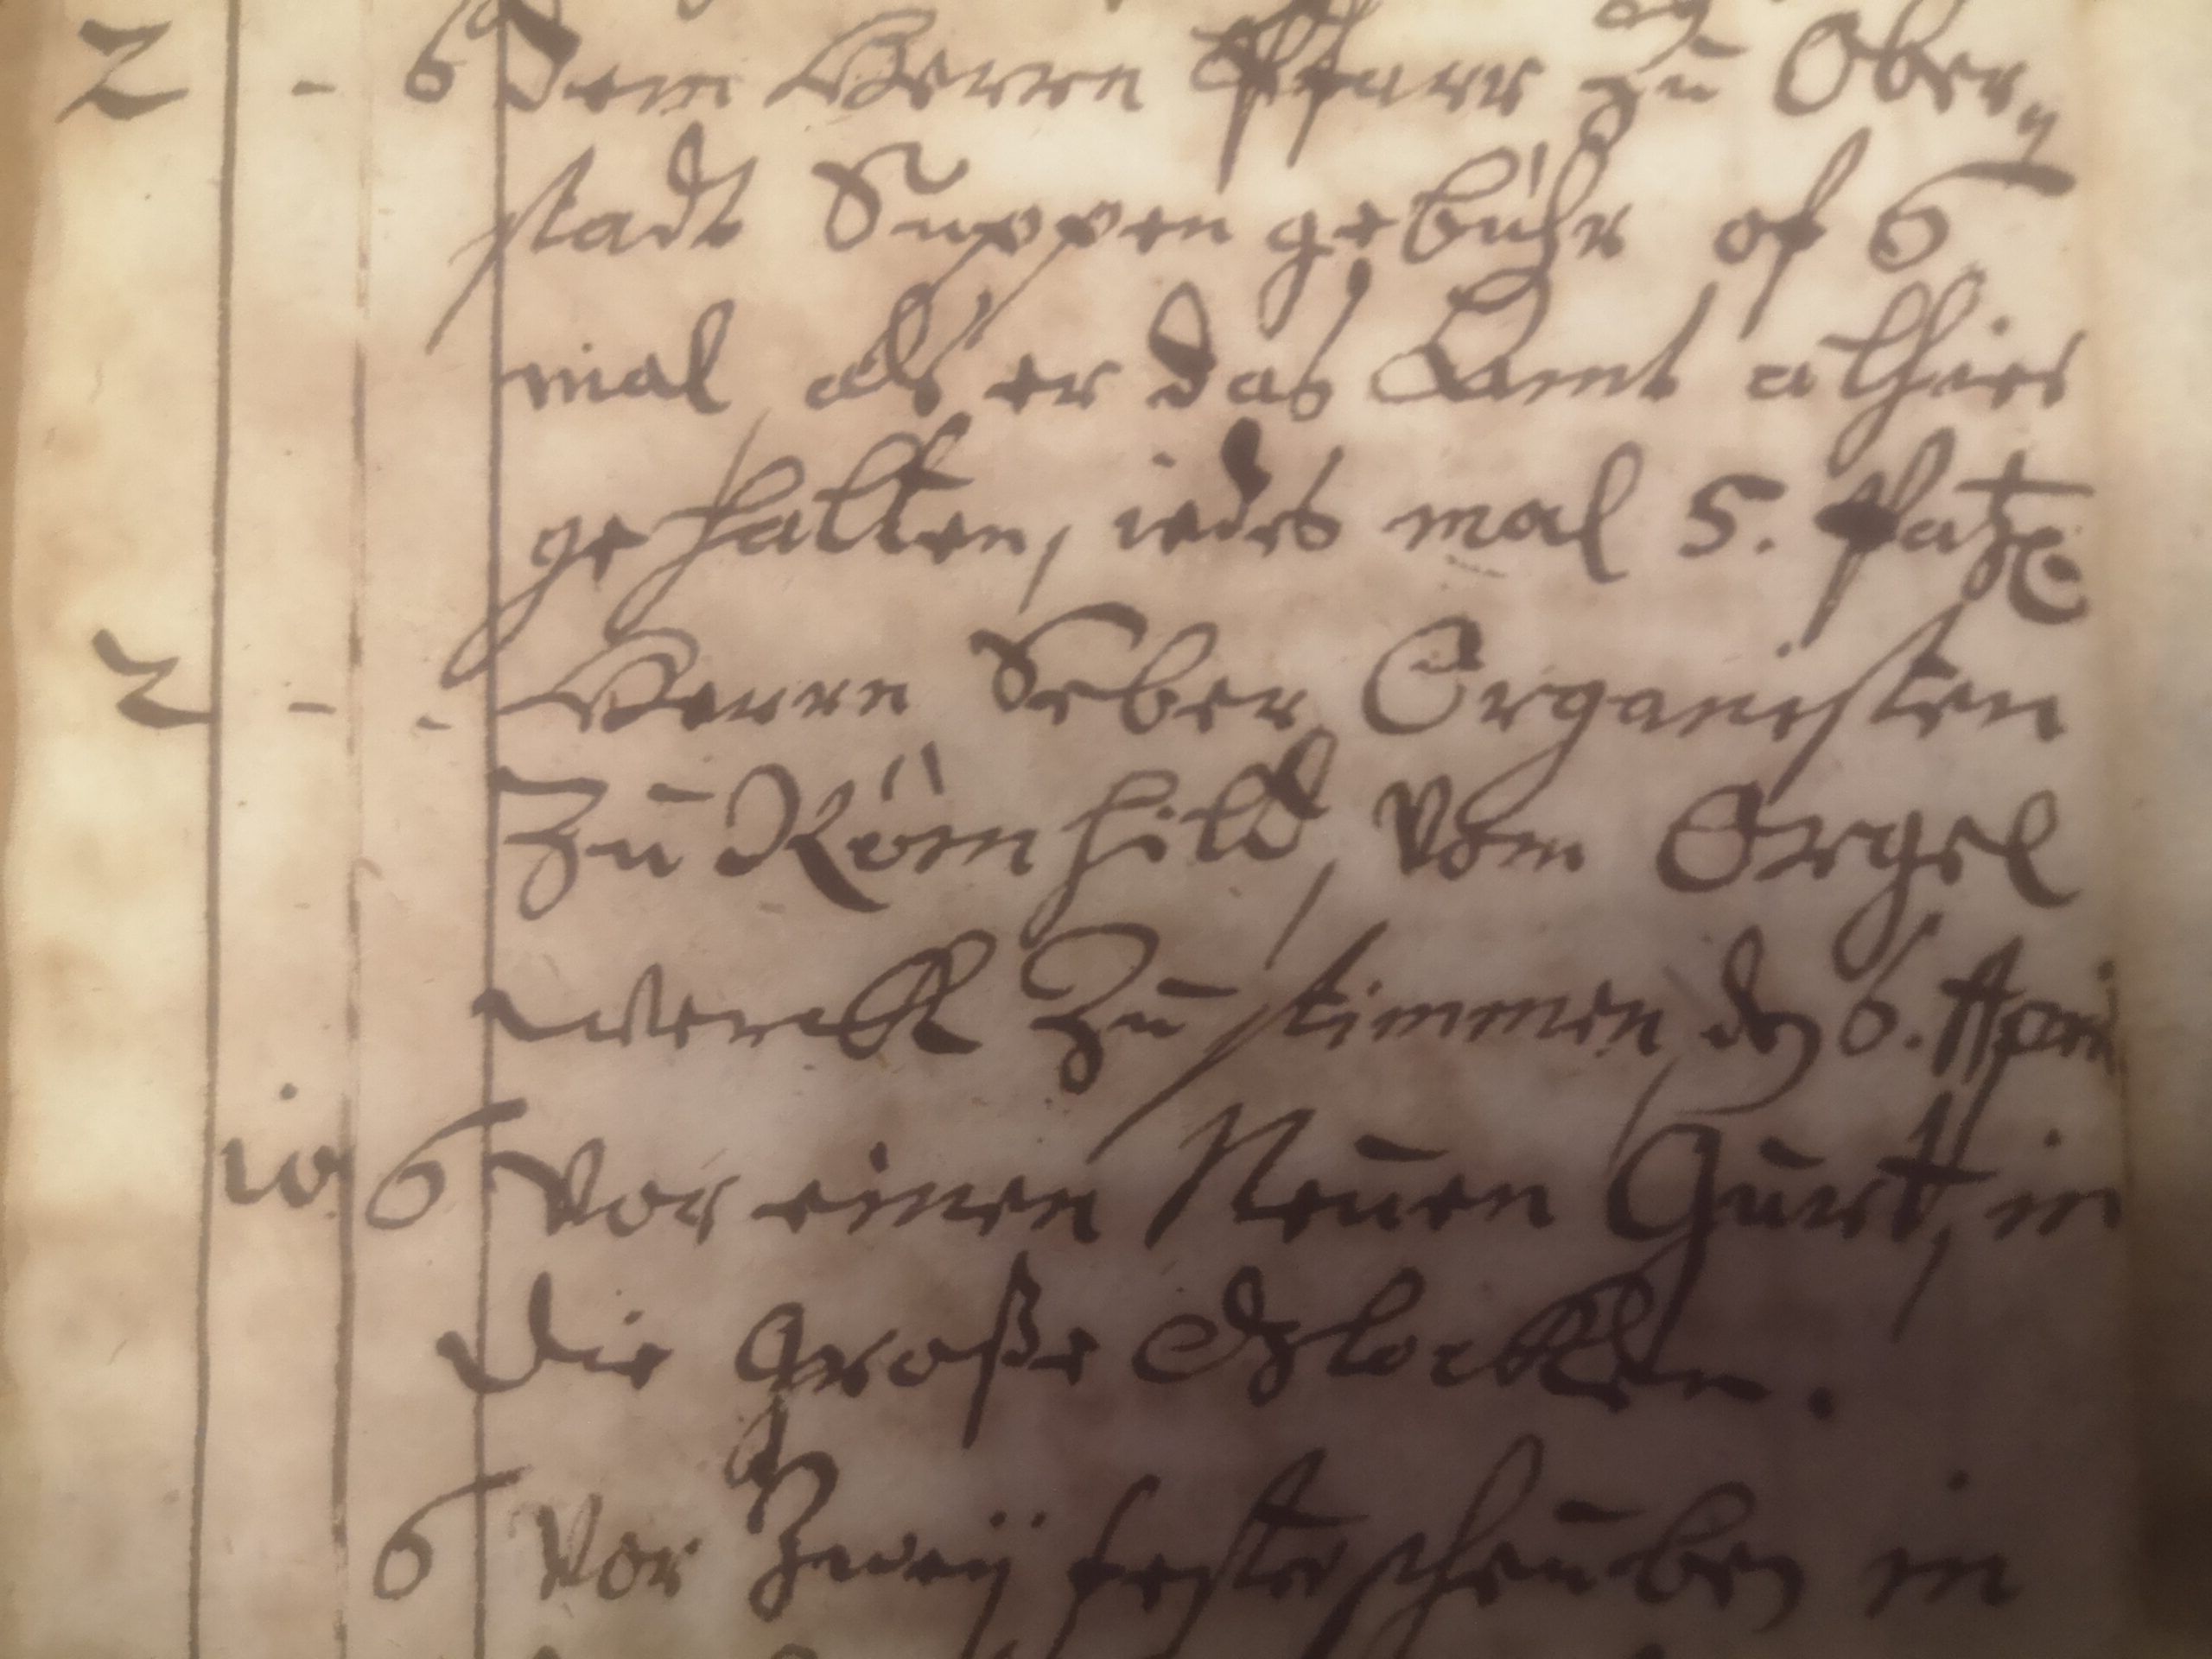 2 - 6 Dem Herrn Pfarr zu Ober,
stadt Suppen gebühr of 6
mal als er das Ambt alhier
gehalten, iedes mal 5. Patzē
2 - - Herrn Seber Organisten
Zu Römhild, vom Orgel
werckh Zu stimmen den 6. April
10 6 Vor einen Neuen Gurtt, in
die große Glocken.
6 Vor Zweÿ in